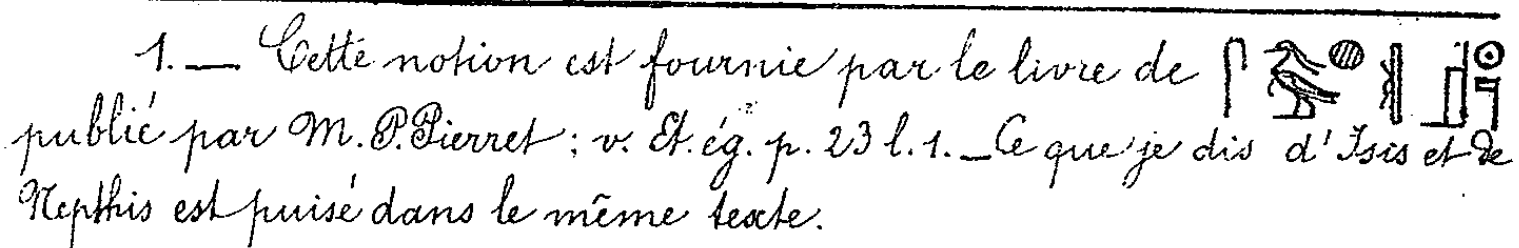 1. — Cette notion est fournie par le livre de
publié par M. P. Pierret ; v. Et. ég. p. 23 l. 1. — Ce que je dis d'Isis et de
Nepthis est puisé dans le même texte.